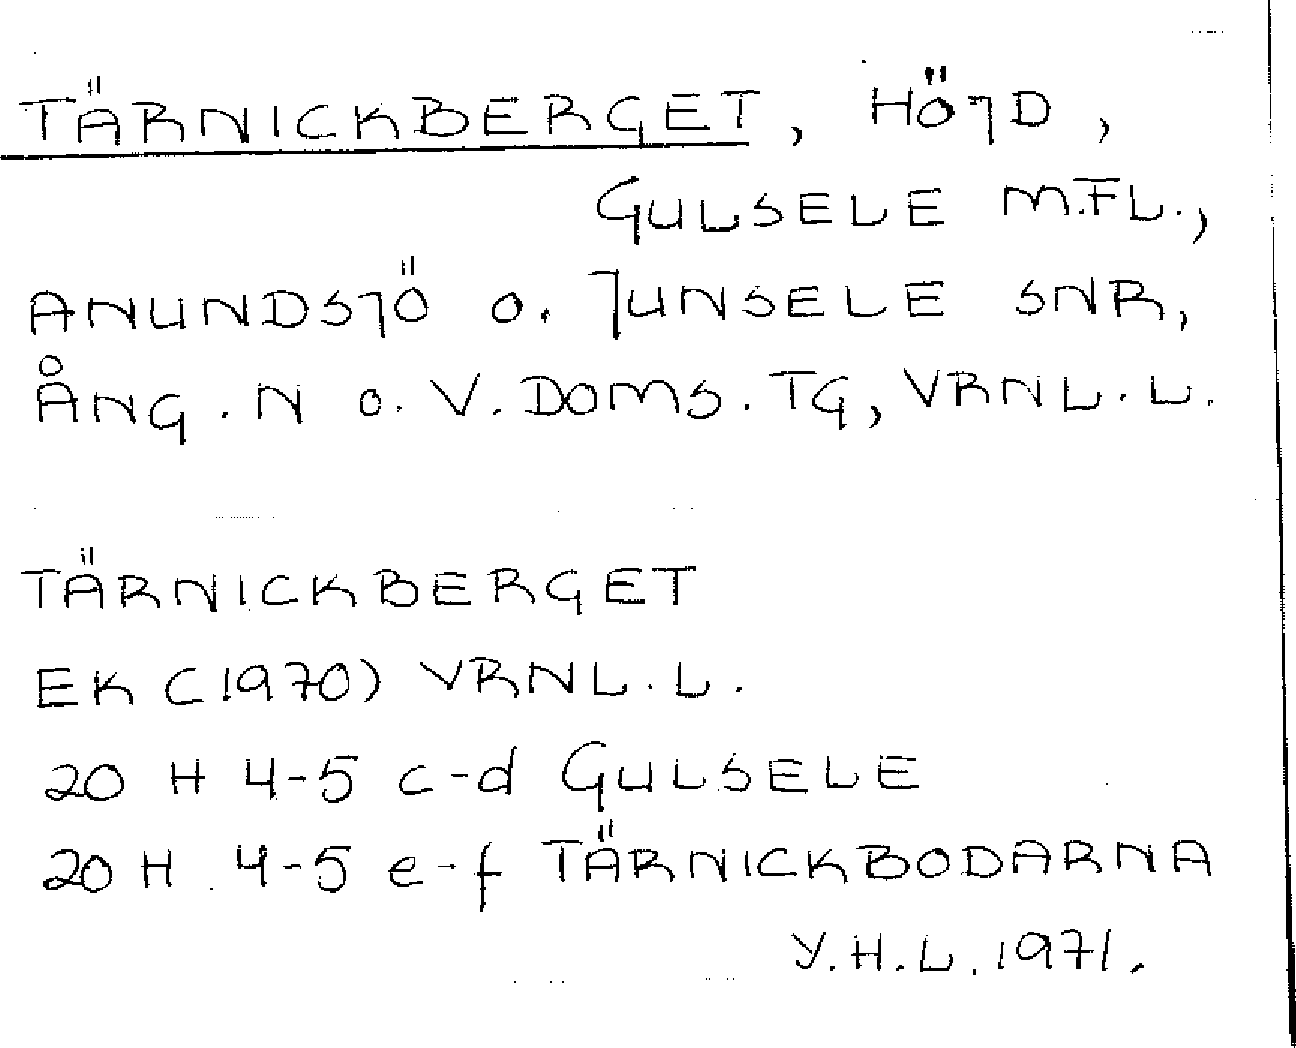 TÄRNICKBERGET, HÖJD,
GULSELE M.FL.,
ANUNDSJÖ o. JUNSELE SNR,
ÅNG. N o. V. DOMS. TG, VRNL. L.
TÄRNICKBERGET
EK (1970) VRNL. L.
20 H 4-5 c-d GULSELE
20 H. 4-5 e-f TÄRNICKBODARNA
Y.H.L. 1971.